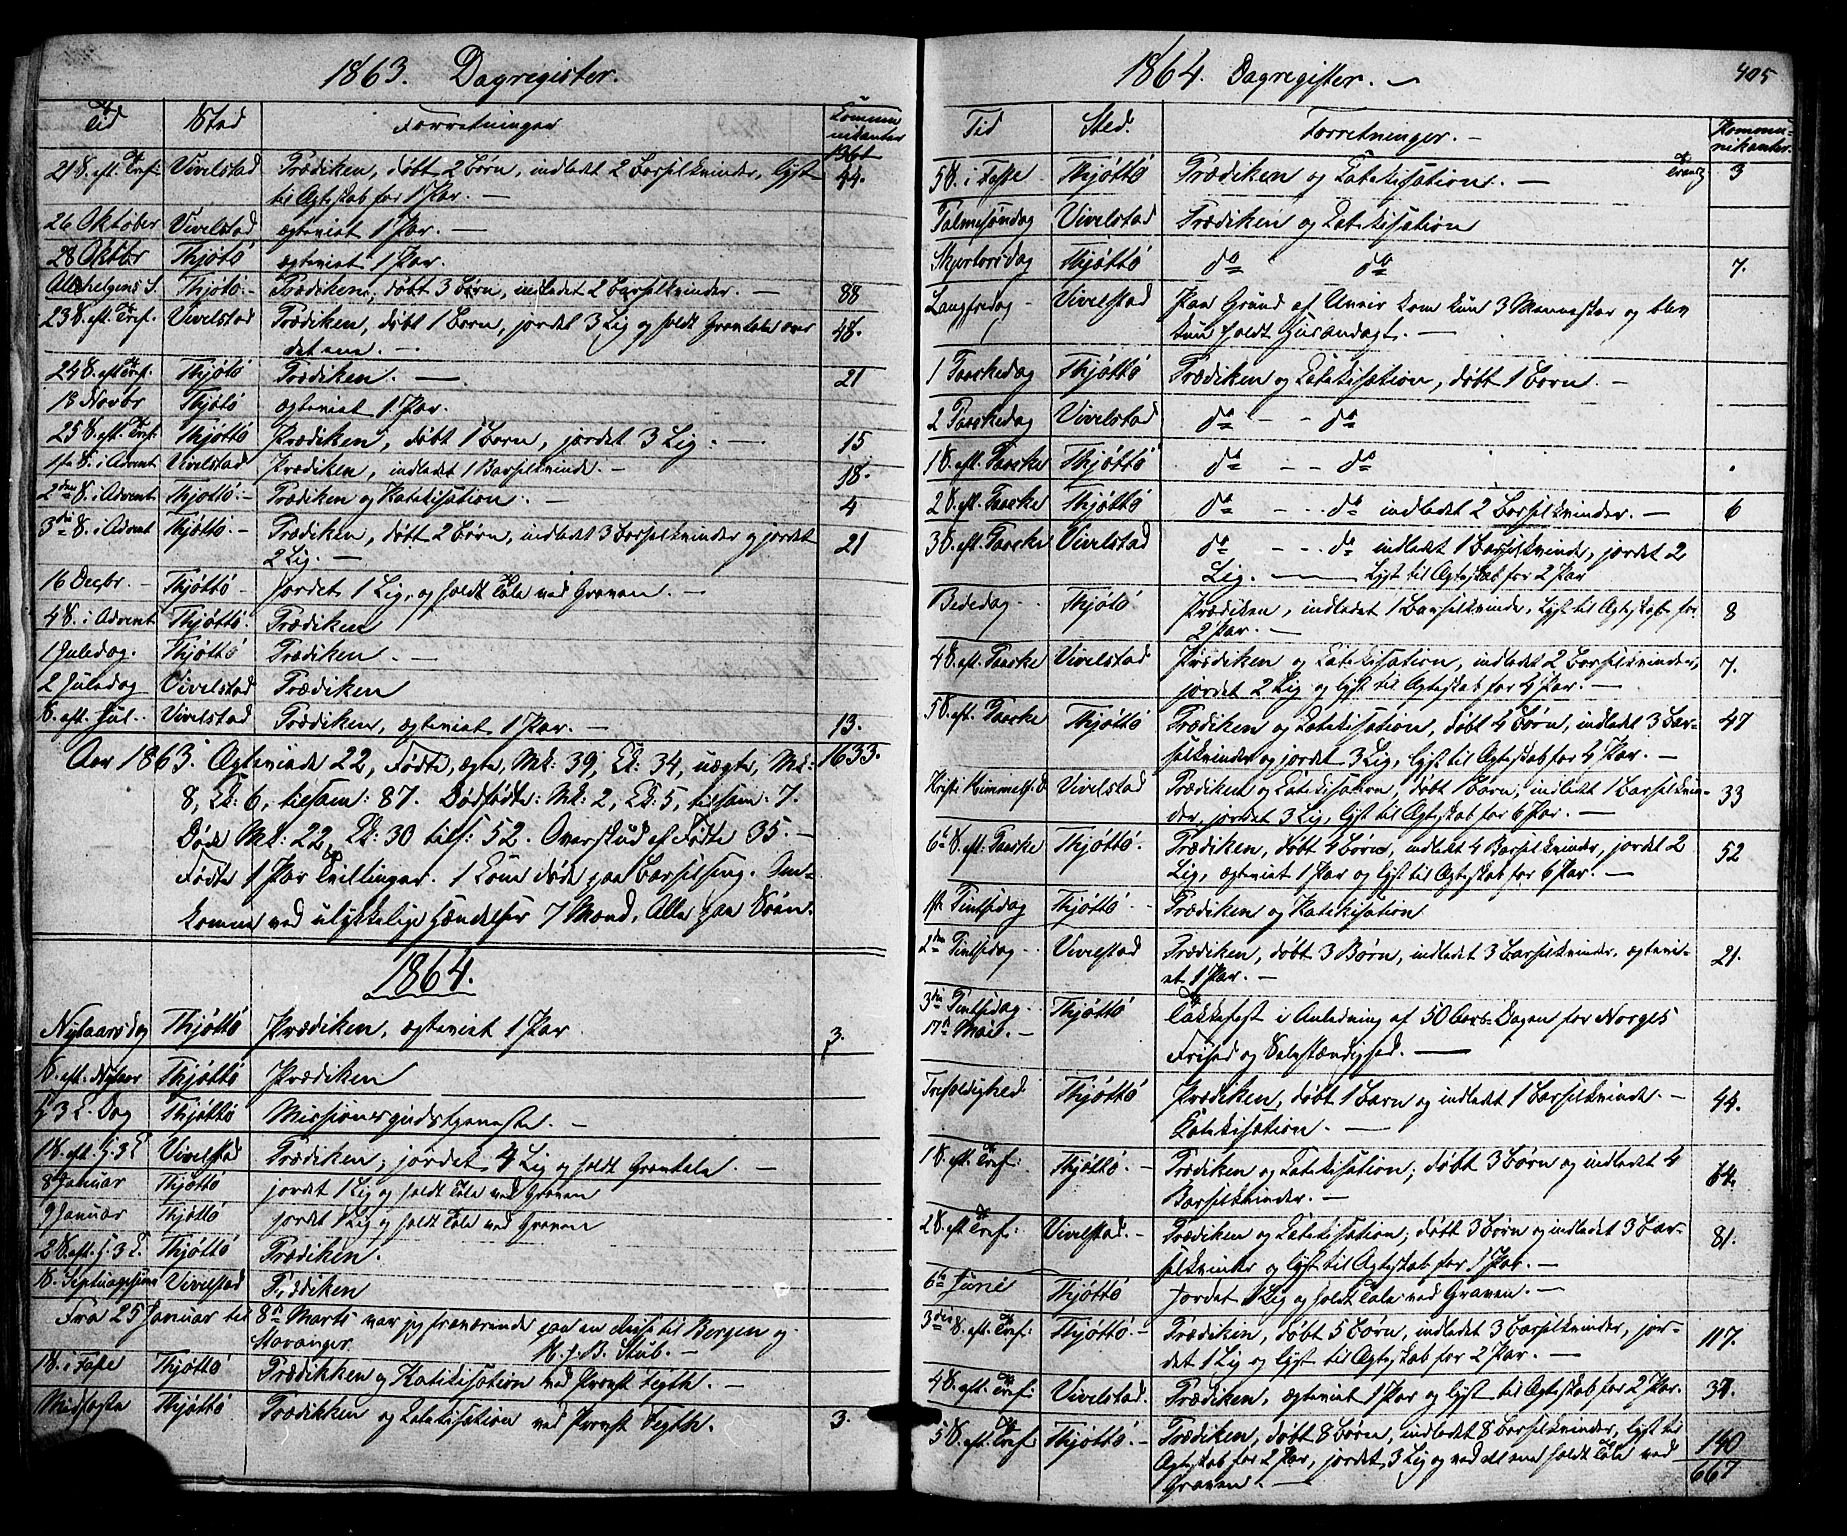 1863. Dagregister.
Tid Sted Forretninger Kommunikanter
1361
21 S. eft. Tref: Vivelstad Prædiken, døbt 2 Børn, indledet 2 Barselkvinder, lyst 44.
til Ægteskab for 1 Par. —
26 Oktober Vivelstad ægteviet 1 Par. —
28 Oktbr Thjøtø ægteviet 1 Par.
Allehelgens S. Thjøtø.- Prædiken, døbt 3 Børn, indledet 2 Barselkvinder. — 88
23 S. eft. Tref. Vivelstad Prædiken, døbt 1 Barn, jordet 3 Lig og holdt Gravtale over 48.
det ene. —
24 S. eft Tref. Thjøtø Prædiken. — 21
18 Novbr Thjøtø ægteviet 1 Par.
25 S. eft. Tref: Thjøttø Prædiken, døbt 1 Barn, jordet 3 Lig. — 15
1ste S. i Advent Vivelstad Prædiken, indledet 1 Barselkvinde. — 18.
2den S. i Advent Thjøttø.- Prædiken og Katekisation. — 4
3die S. i Advent Thjøttø.- Prædiken, døbt 2 Børn, indledet 3 Barselkvinder og jordet 21
2 Lig. —
16 Decbr. - Thjøttø - Jordet 1 Lig, og holdt Tale ved Graven. —
4 S. i Advent Thjøttø. Prædiken
1 Juledag. Thjøttø Prædiken. —
2 Juledag Vivelstad Prædiken
S. eft. Jul.. Vivelstad Prædiken, ægteviet 1 Par. — 13.
Aar 1863. Ægteviede 22, Fødte, ægte, Mk: 39, Qk: 34, uægte, Mk: 1633.
8, Qk: 6, tilsam: 87. Dødfødte: Mk: 2, Qk: 5, tilsam: 7.
Døde Mk: 22, Qk: 30 tils: 52. Overskud af Fødte 35. —
Fødte 1 Par Tvillinger. 1 Kone døde paa Barselseng. Om-
komne ved ulykkelige Hændelser 7 Mænd, Alle paa Søen.
1864.
Nytaarsdag Thjøttø Prædiken, ægteviet 1 Par 3.
S. eft. Nytaar Thjøttø Prædiken
H 3 K. Dag Thjøttø Missionsgudstjeneste. —
1 S. eft. H. 3 K Vivelstad Prædiken, jordet 4 Lig og holdt Gravtale. —
8 Januar Thjøttø jordet 1 Lig og holdt Tale ved Graven
9 Januar Thjøttø jordet 1 Lig og holdt Tale ved Graven
2 S. eft. H. 3 K. Thjøttø Prædiken.
S. Septuagesima Vivelstad Prædiken
Fra 25 Januar til 8de Marts var jeg fraværende paa en Reise til Bergen og
Stavanger. Stub. —
1 S. i Faste Thjøttø Prædikken og Katekisation ved Provst Fegth. —
Midfaste Thjøttø Prædikken og Katekisation ved Provst Fegth. — 3.
1864. Dagregister. — 405
Tid Sted. Forretninger. — Kommunikanter.
5 S. i Faste - Thjøttø Prædiken og Katekisation. — 3
Palmesøndag Vivelstad Prædiken og Katekisation
Skjertorsdag Thjøttø do do 7.
Langfredag - Vivelstad Paa Grund af Uveir kom kun 3 Mennesker og blev
kun holdt Husandagt. —
1 Paaskedag Thjøttø Prædiken og Katekisation, døbt 1 Barn. —
2 Paaskedag Vivelstad do — — do
1 S. eft. Paaske Thjøttø do — — do .
2 S. eft. Paaske Thjøttø do — . . do indledet 2 Barselkvinder. — 6
3 S. eft. Paaske Vivelstad do — . . do indledet 1 Barselkvinde, jordet 2
Lig. — Lyst til Ægteskab for 2 Par
Bededag - Thjøttø Prædiken, indledet 1 Barselkvinde, Lyst til Ægteskab for 8
2 Par. —
4 S. eft. Paaske Vivelstad Prædiken og Katekisation, indledet 2 Barselkvinder, 7.
jordet 2 Lig og lyst til Ægteskab for 4 Par. —
5 S. eft. Paaske Thjøttø Prædiken og Katekisation, døbt 4 Børn, indledet 3 Bar- 47
selkvinder og jordet 3 Lig, lyst til Ægteskab for 4 Par. —
Kristi Himmelf. D Vivelstad Prædiken og Katekisation, døbt 1 Barn, indledet 1 Barselkvin- 33
der, jordet 3 Lig, lyst til Ægteskab for 6 Par. —
6te S. eft. Paaske Thjøttø. Prædiken, døbt 4 Børn, indledet 4 Barselkvinder, jordet 2 52
Lig, ægteviet 1 Par og lyst til Ægteskab for 6 Par. —
1ste Pintsedag Thjøttø - Prædiken og Katekisation
2den Pintsedag - Vivelstad Prædiken, døbt 3 Børn, indledet 3 Barselkvinder, ægtevi- 21.
et 1 Par. —
3die Pintsedag - Thjøttø Takkefest i Anledning af 50 Aars-Dagen for Norges
17de Mai. - Frihed og Selvstændighed. —
Trefoldighed. Thjøttø Prædiken, døbt 1 Barn og indledet 1 Barselkvinde. — 44.
Katekisation. —
1 S. eft. Tref: Thjøttø. - Prædiken og Katekisation, døbt 3 Børn og indledet 4 64.
Barselkvinder. —
2 S. eft Tref: Vivelstad. - Prædiken og Katekisation, døbt 3 Børn og indledet 3 Bar- 81.
selkvinder og lyst til Ægteskab for 1 Par. —
6te Juni Thjøttø Jordet 1 Lig og holdt Tale ved Graven. —
3die S. eft. Tref: Thjøttø. - Prædiken, døbt 5 Børn, indledet 3 Barselkvinder, jor- 117.
det 1 Lig og lyst til Ægteskab for 2 Par. —
4 S. eft. Tref: Vivelstad. Prædiken, ægteviet 1 Par og lyst til Ægteskab for 2 Par. 37.
5 S. eft. Tref. Thjøttø. - Prædiken, døbt 8 Børn, indledet 8 Barselkvinder, lyst til 140
Ægteskab for 2 Par, jordet 3 Lig og ved det ene holdt Tale ved
Graven. — 667